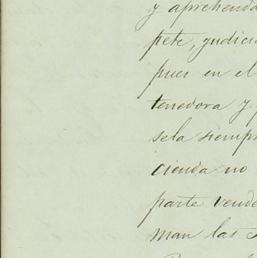 y aprehenda
pete, judicia
pues en el
tenedora y
sela siempr
cienda no
parte vende
man las